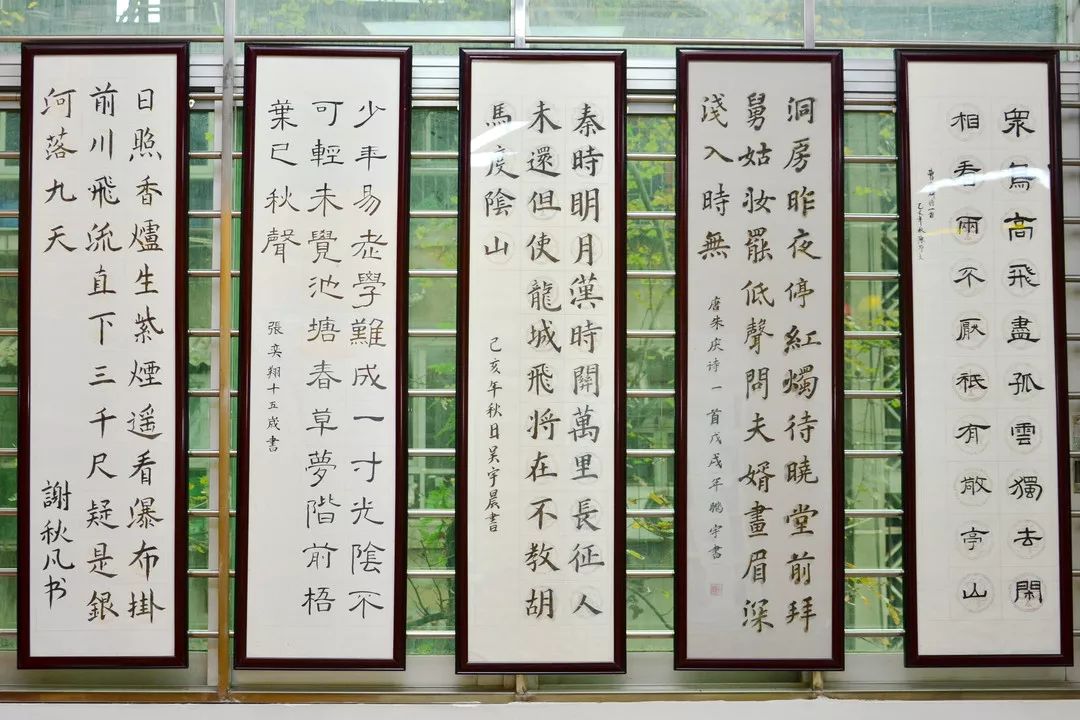 衆鳥高飛盡孤雲獨去閑
相看兩不厭祇有敬亭山
洞房昨夜停紅燭待曉堂前拜
舅姑妝罷低聲問夫婿畫眉深
淺入時無
唐朱庆诗一首戊戌年鵬宇書
秦時明月漢時關萬里長征人
未還但使龍城飛将在不教胡
馬度陰山
己亥年秋日吴宇晨書
少年易老學難成一寸光陰不
可輕未覺池塘春草夢階前梧
葉已秋聲
張奕翔十五歲書
日照香爐生紫煙遥看瀑布掛
前川飛流直下三千尺疑是銀
河落九天
謝秋凡书